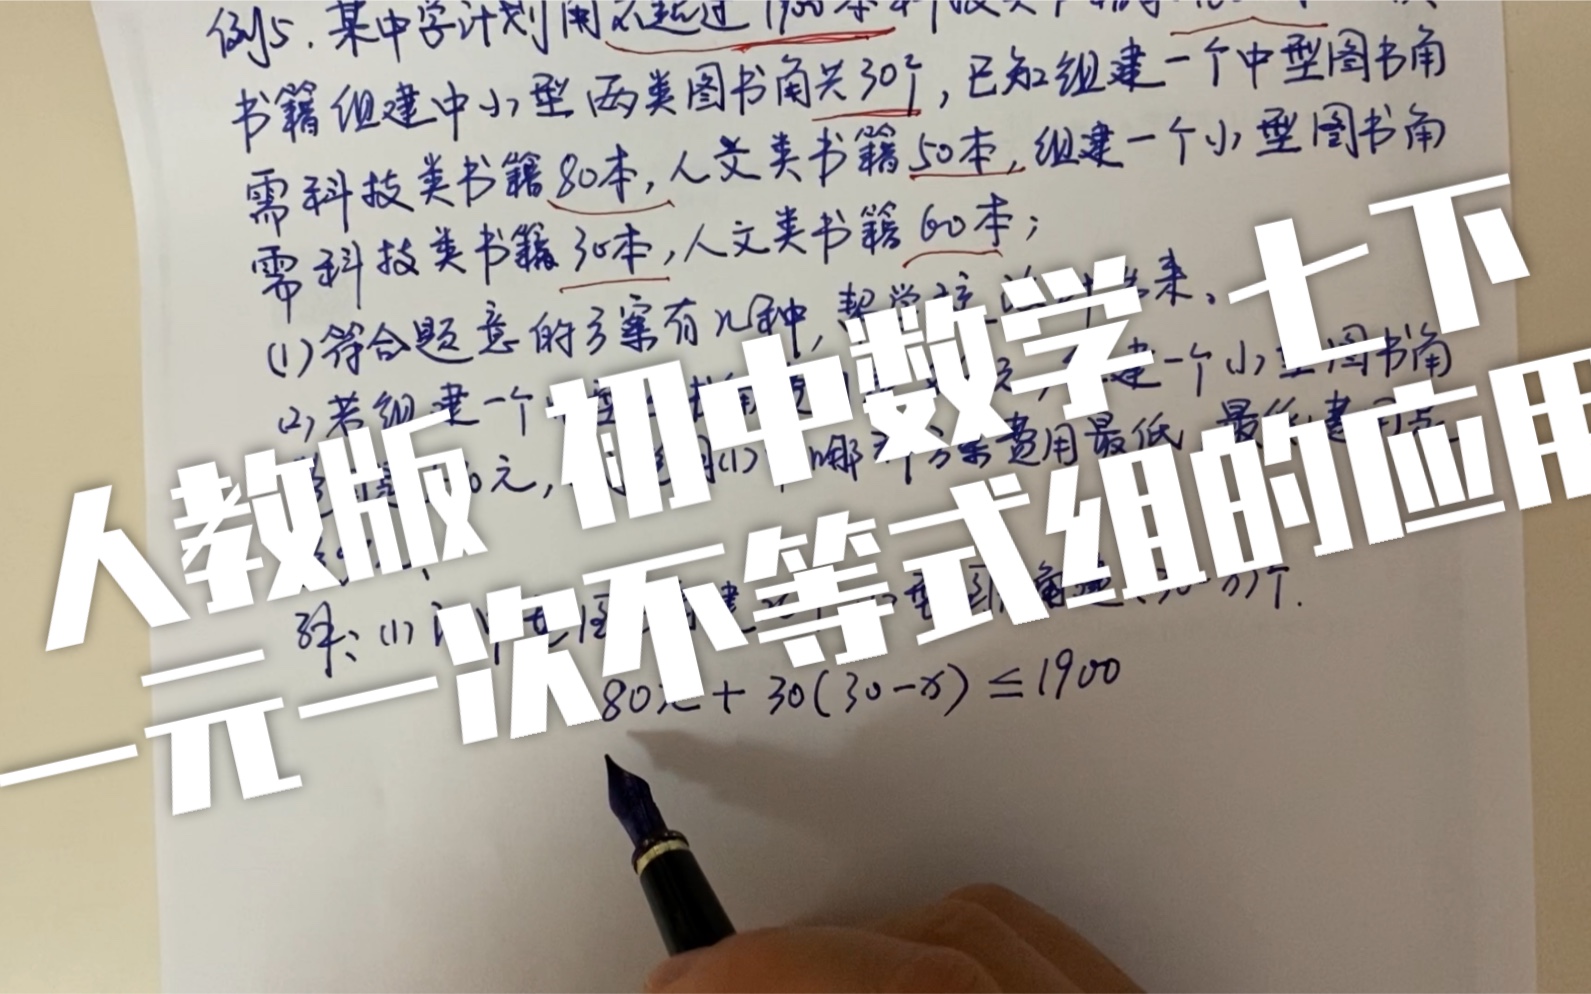 例5.某中学计划用不超过1900本科技类书籍
书籍组建中小型两类图书角共30个,已知组建一个中型图书角
需科技类书籍80本,人文类书籍50本,组建一个小型图书角
需科技类书籍30本,人文类书籍60本;
(1)符合题意的方案有几种,来.
(2)若组建一个建一个小型图书角
0元,(1)中哪个方案费用最低
人教版 初中数学 七下
一元一次不等式组的应用
解:(1)个.
80x+30(30-x)≤1900